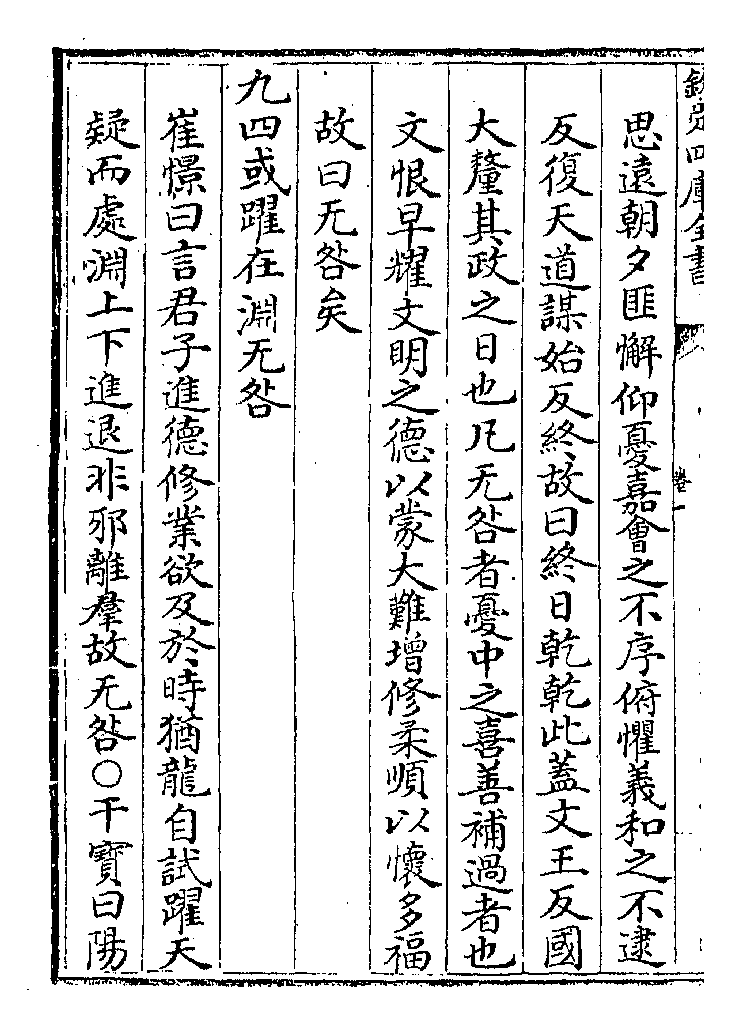 欽定四庫全書
卷一
思遠朝夕匪懈仰憂嘉會之不序俯懼義和之不逮
反復天道謀始反終故曰終日乾乾此蓋文王反國
大釐其政之日也凡无咎者憂中之喜善補過者也
文恨早耀文明之德以蒙大難增修柔順以懷多福
故曰无咎矣
九四或躍在淵无咎
崔憬曰言君子進德修業欲及於時猶龍自試躍天
疑而處淵上下進退非邪離羣故无咎○干寶曰陽